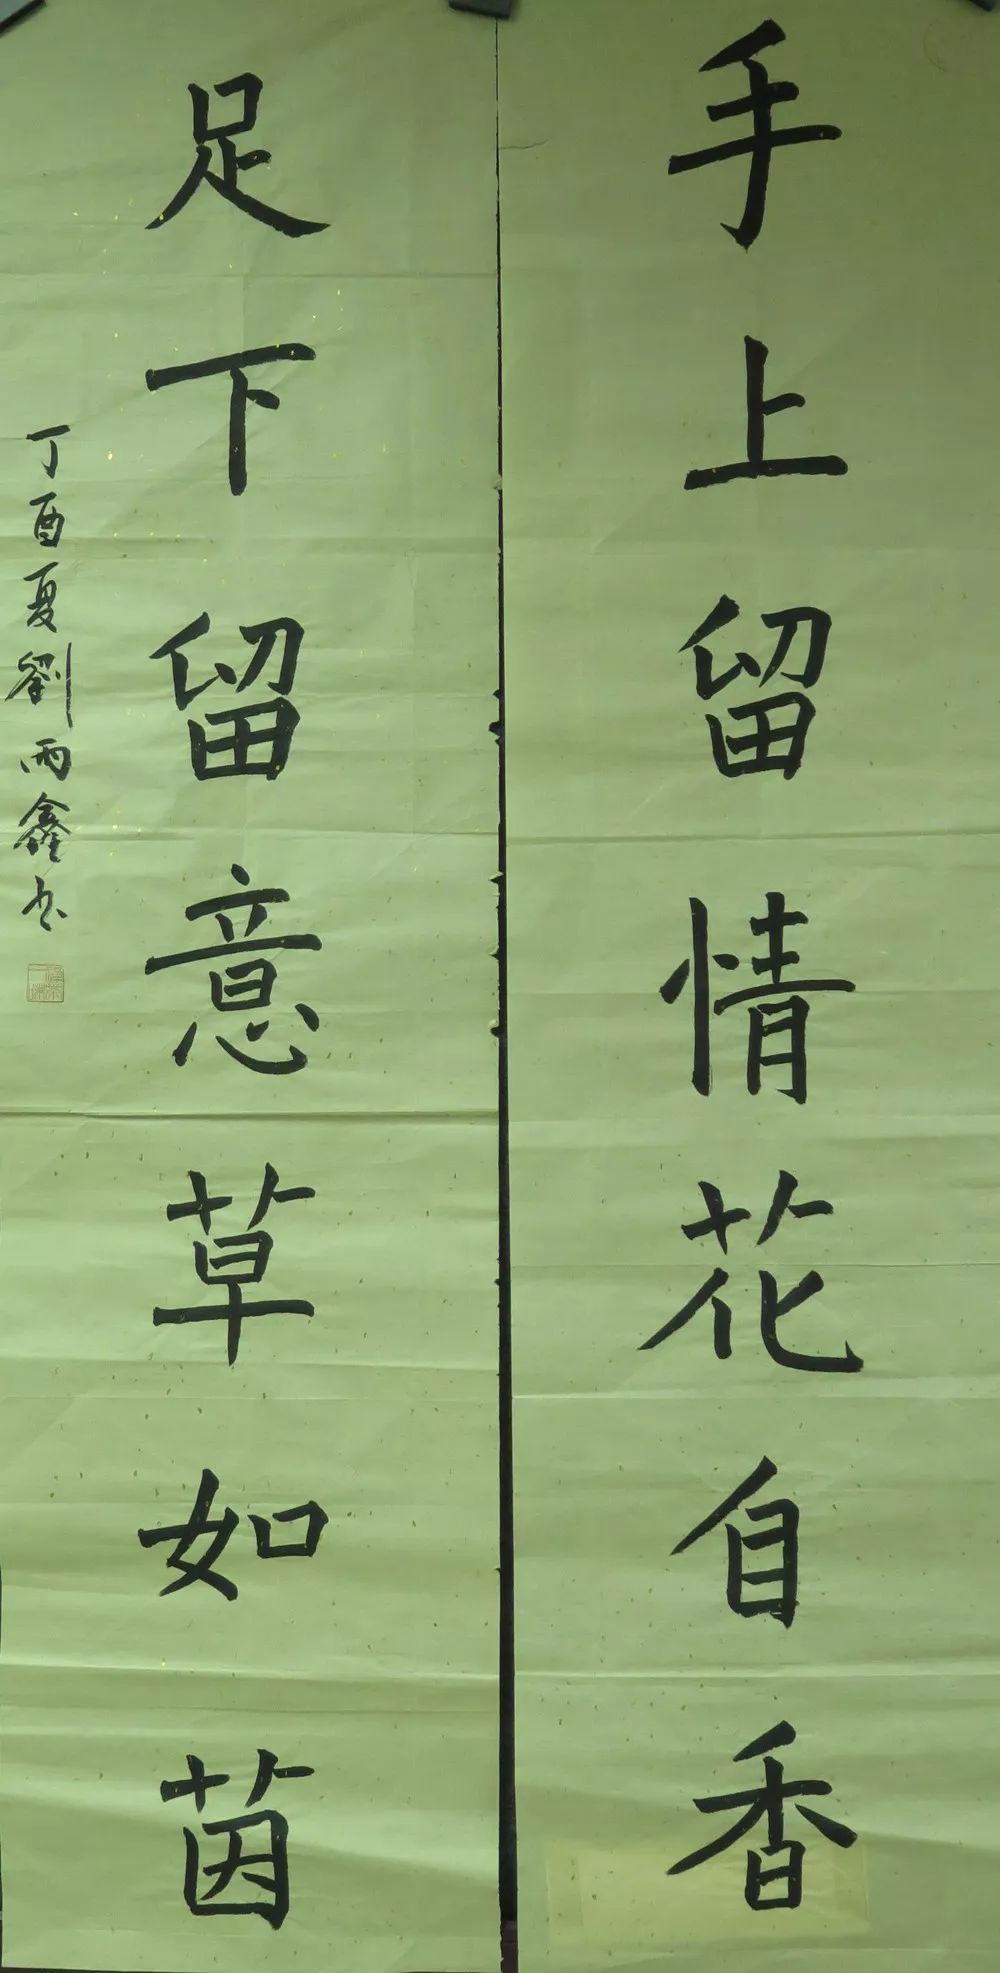 手上留情花自香
足下留意草如茵
丁酉夏劉雨鑫书